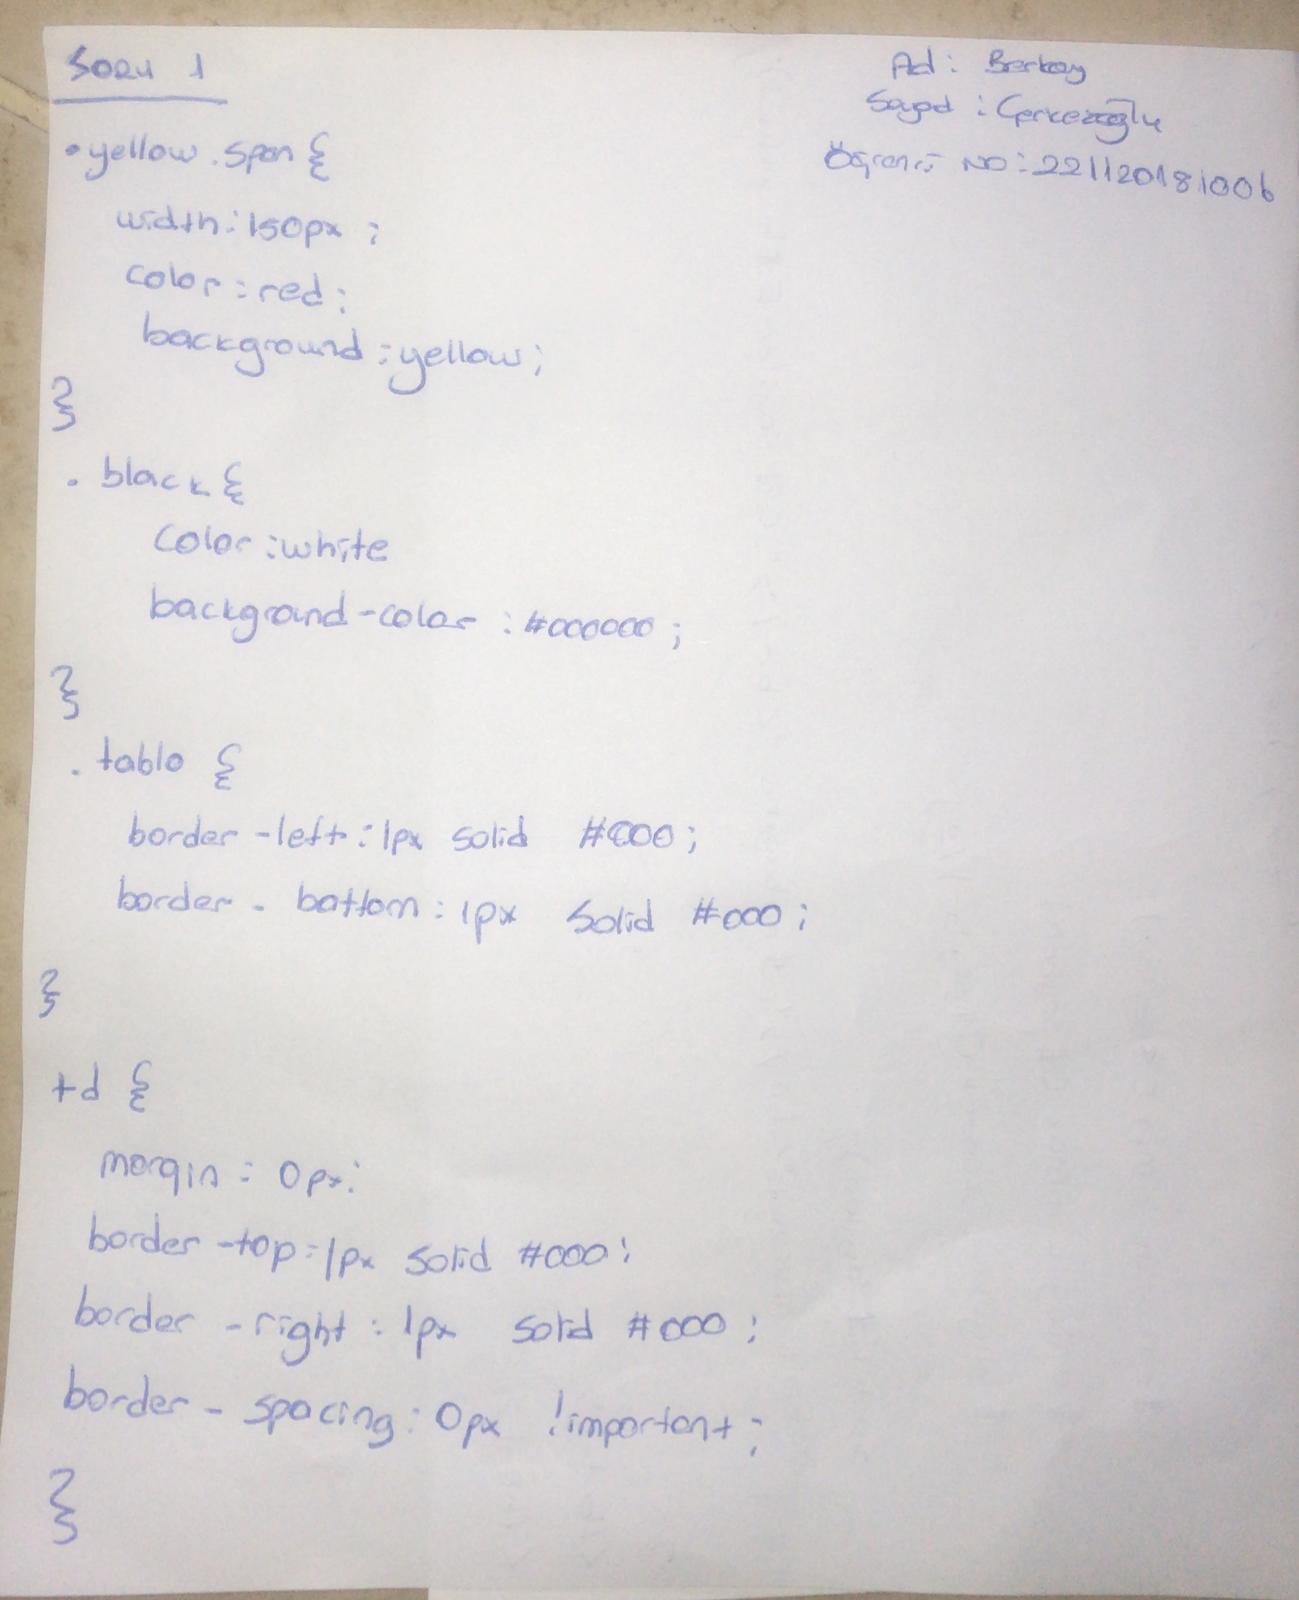 Soru 1
Ad : Berkay
Soyad : Çerkezoğlu
Öğrenci NO : 221120181006
.yellow .span {
width : 150px ;
color : red ;
background : yellow ;
}
. black {
color : white
background-color : #000000 ;
}
. tablo {
border -left : 1px solid #000 ;
border - bottom : 1px solid #000 ;
}
td {
margin : 0px ;
border -top : 1px solid #000 ;
border -right : 1px solid #000 ;
border - spacing : 0px !important ;
}